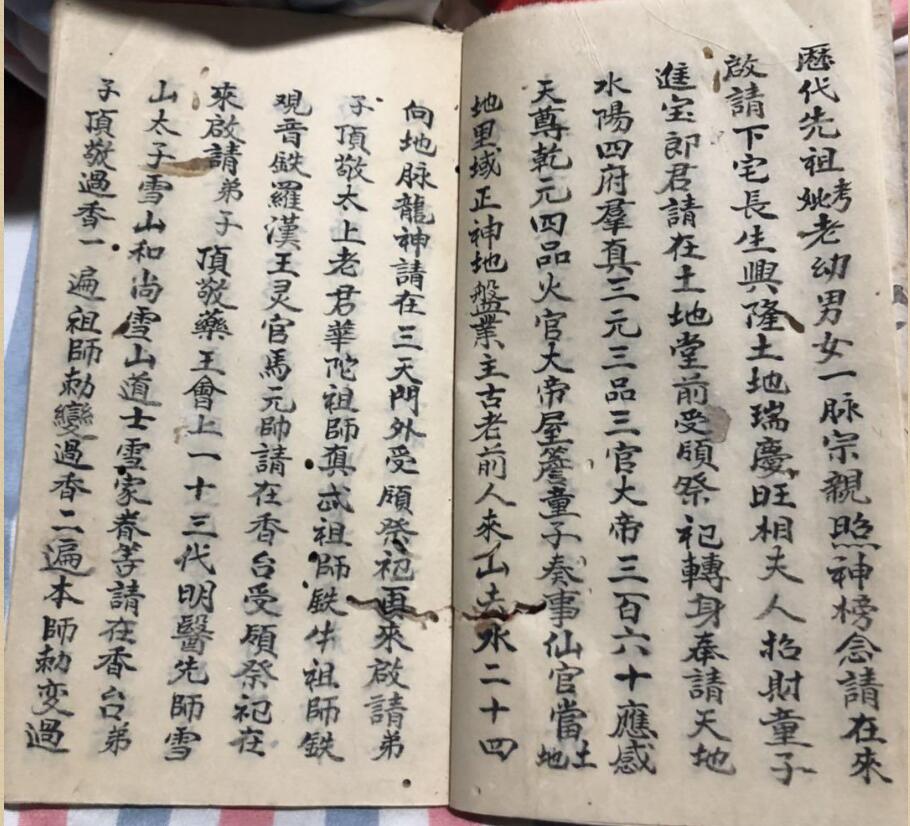 歷代先祖考妣老幼男女一脉宗親照神榜念請在來
啟請下宅長生興隆土地瑞慶旺相夫人招財童子
進宝郎君請在土地堂前受領祭祀轉身奉請天地
水陽四府羣真三元三品三官大帝三百六十應感
天尊乾元四品火官大帝屋簷童子奏事仙官當土地
地里域正神地盤業主古老前人來山去水二十四
向地脉龍神請在三天門外受領祭祀再來啟請弟
子頂敬太上老君華陀祖師真武祖師鉄牛祖師鉄
觀音鉄羅漢王灵官馬元帥請在香台受領祭祀在
來啟請弟子頂敬藥王會上一十三代明醫先師雪
山太子雪山和尚雪山道士雪家眷等請在香台弟
子頂敬過香一遍祖師勅變過香二遍本師勅变過